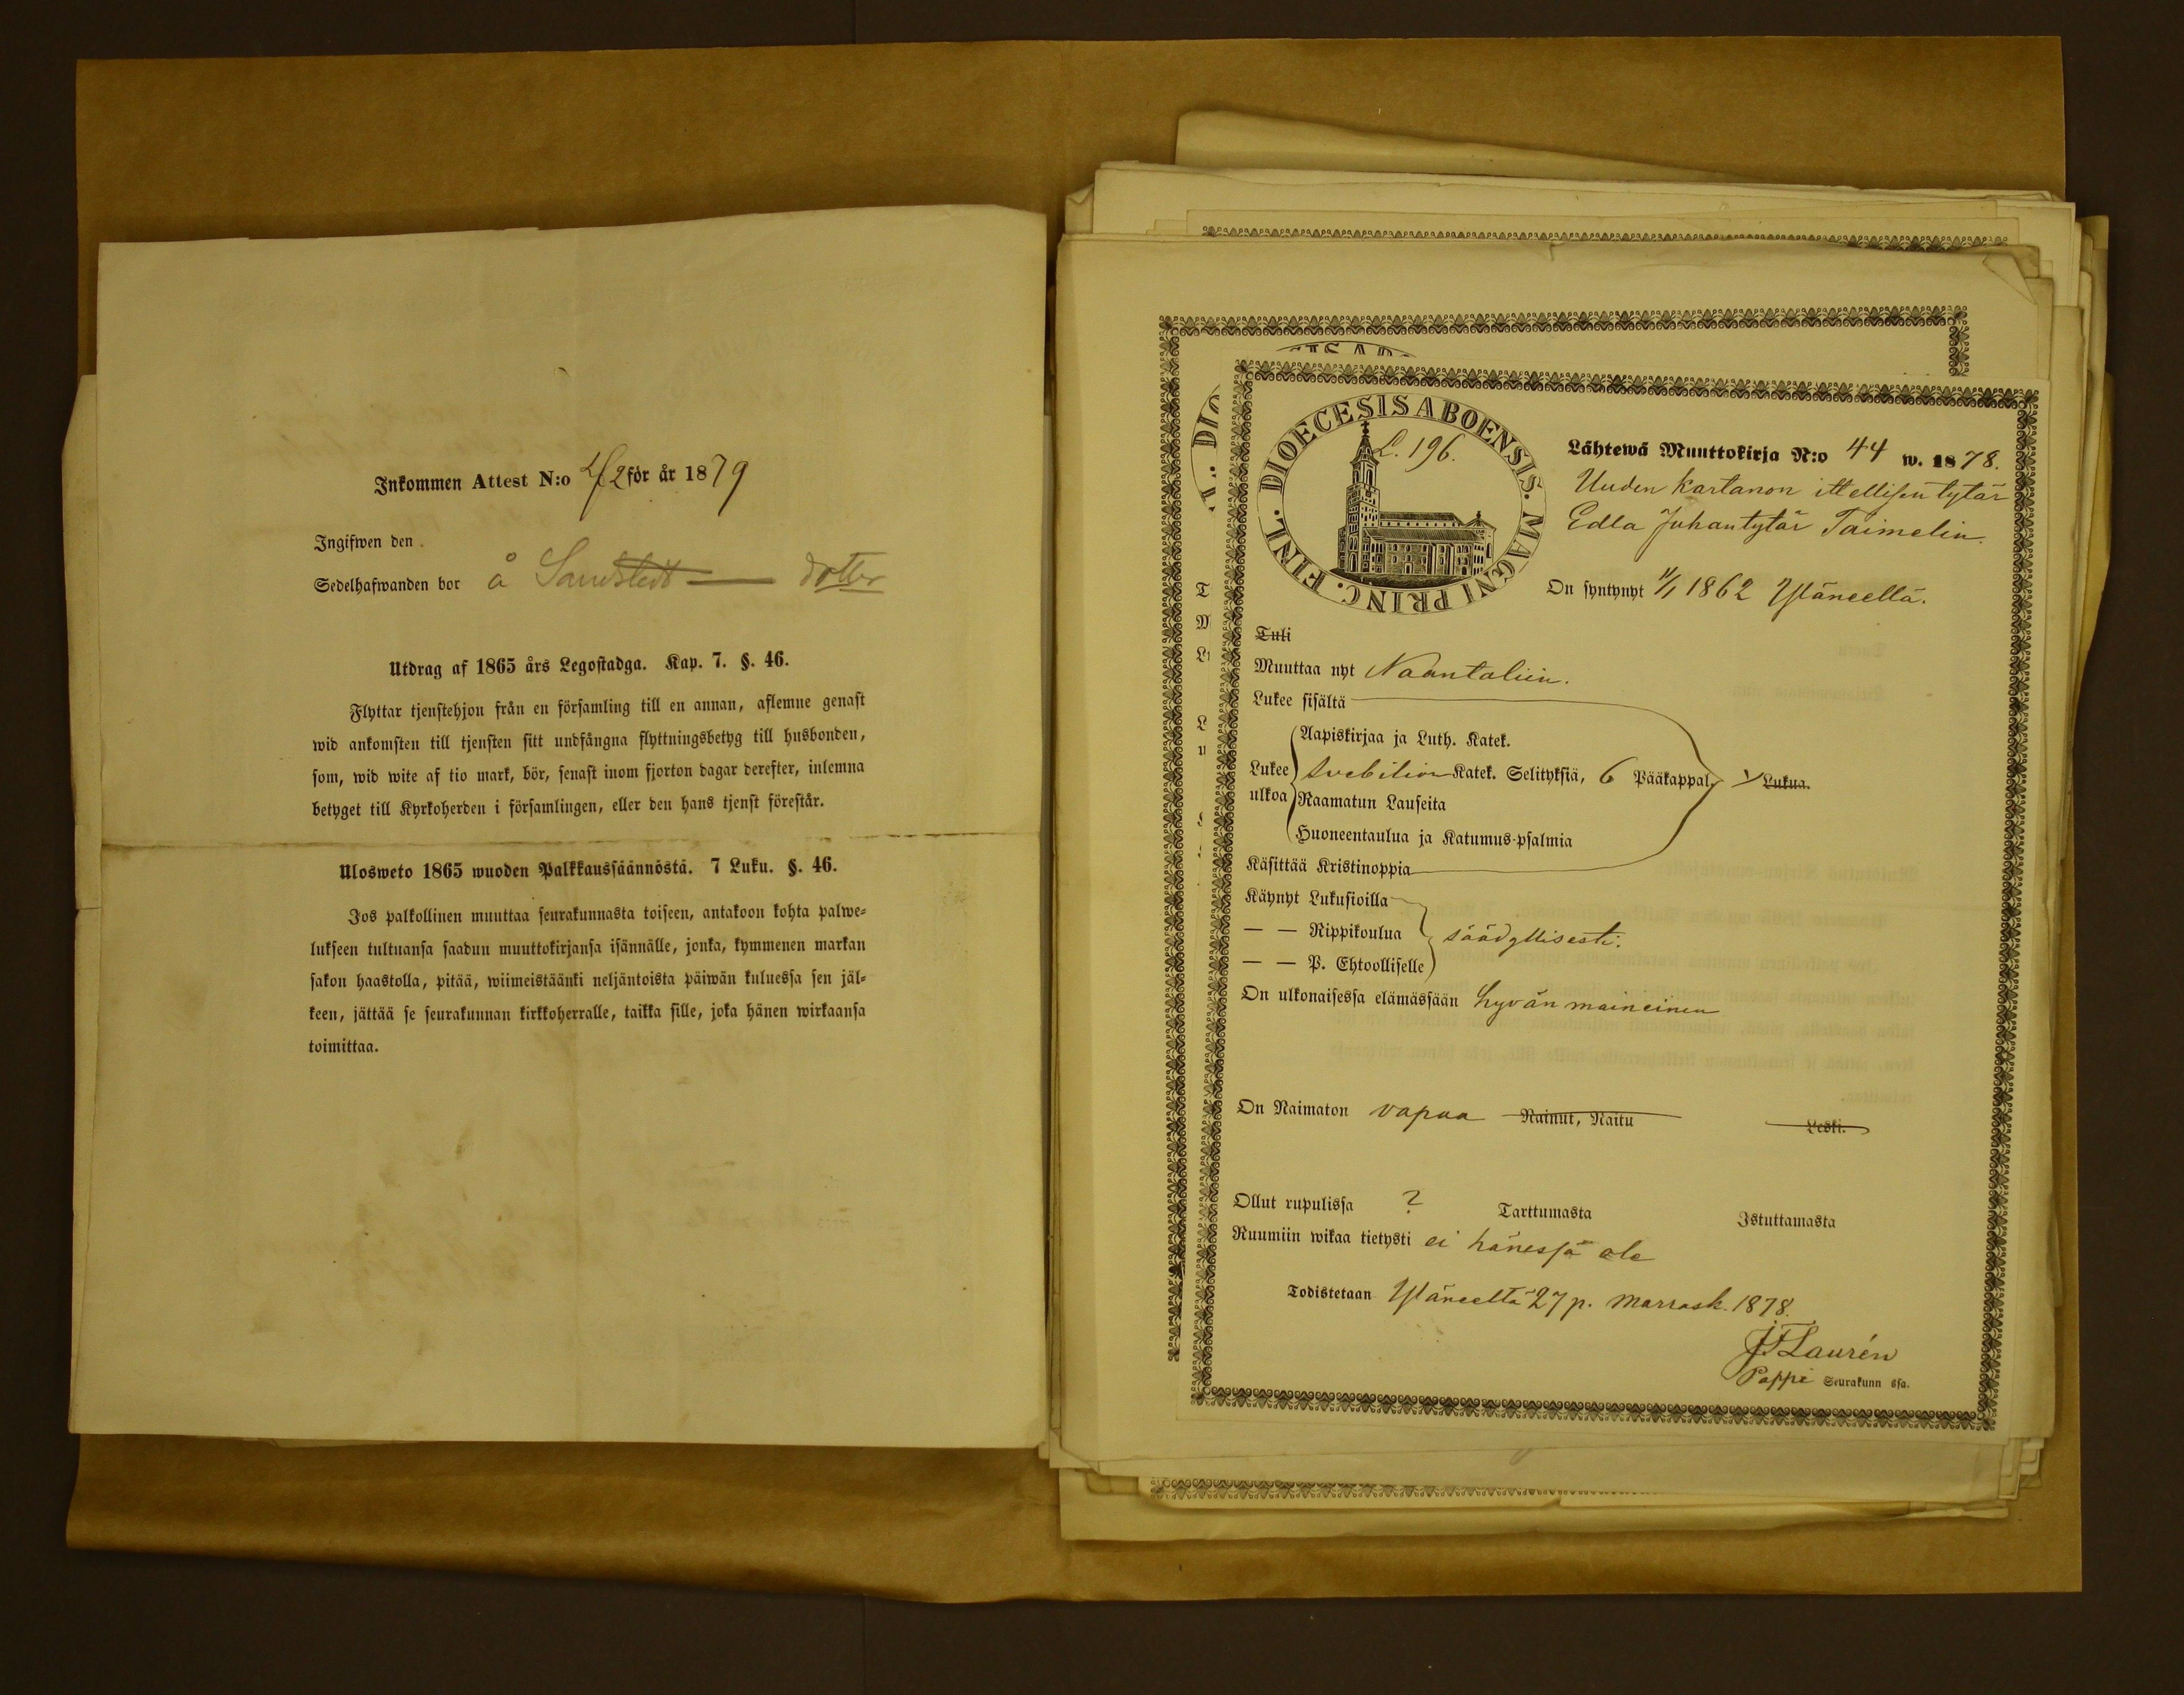 Inkommen Attest N:o 42 för år 1879
Ingifwen den
Sedelhafwanden bor å Sandstedt dotter
Utdrag af 1865 års Legostadga. Kap. 7. §. 46.
Flyttar tjenstehjon från en församling till en annan, aflemne genast
wid ankomsten till tjensten sitt undfångna flyttningsbetyg till husbonden,
som, wid wite af tio mark, bör, senast inom fjorton dagar derefter, inlemna
betyget till Kyrkoherden i församlingen, eller den hans tjenst förestår.
Ulosweto 1865 wuoden Palkkaussäännöstä. 7 Luku. §. 46.
Jos palkollinen muuttaa seurakunnasta toiseen, antakoon kohta palwe-
lukseen tultuansa saadun muuttokirjansa isännälle, jonka, kymmenen markan
sakon haastolla, pitää, wiimeistäänki neljäntoista päiwän kuluessa sen jäl-
keen, jättää se seurakunnan kirkkoherralle, taikka sille, joka hänen wirkaansa
toimittaa.
DIOECESIS ABOENSIS. MAGNI PRINC. FINL.
L. 196.
Lähtewä Muuttokirja N:o 44 w. 1878.
Uuden kartanon ittellisen tytär
Edla Juhantytär Taimelin.
On syntynyt 11/1 1862 Yläneellä.
Tuli
Muuttaa nyt Naantaliin.
Lukee sisältä
Aapiskirjaa ja Luth. Katek.
Lukee ulkoa Svebilion Katek. Selityksiä, 6 Pääkappal. Lukua.
Raamatun Lauseita
Huoneentaulua ja Katumus-psalmia
Käsittää Kristinoppia
Käynyt Lukusioilla
— — Rippikoulua säädyllisesti.
— — P. Ehtoolliselle
On ulkonaisessa elämässään hyvän maineinen
On Naimaton vapaa Nainut, Naitu Leski.
Ollut rupulissa ? Tarttumasta Istuttamasta
Ruumiin wikaa tietysti ei hänessä ole
Todistetaan Yläneeltä 27 p. Marrask. 1878.
J F Laurén
Pappi Seurakunn ssa.